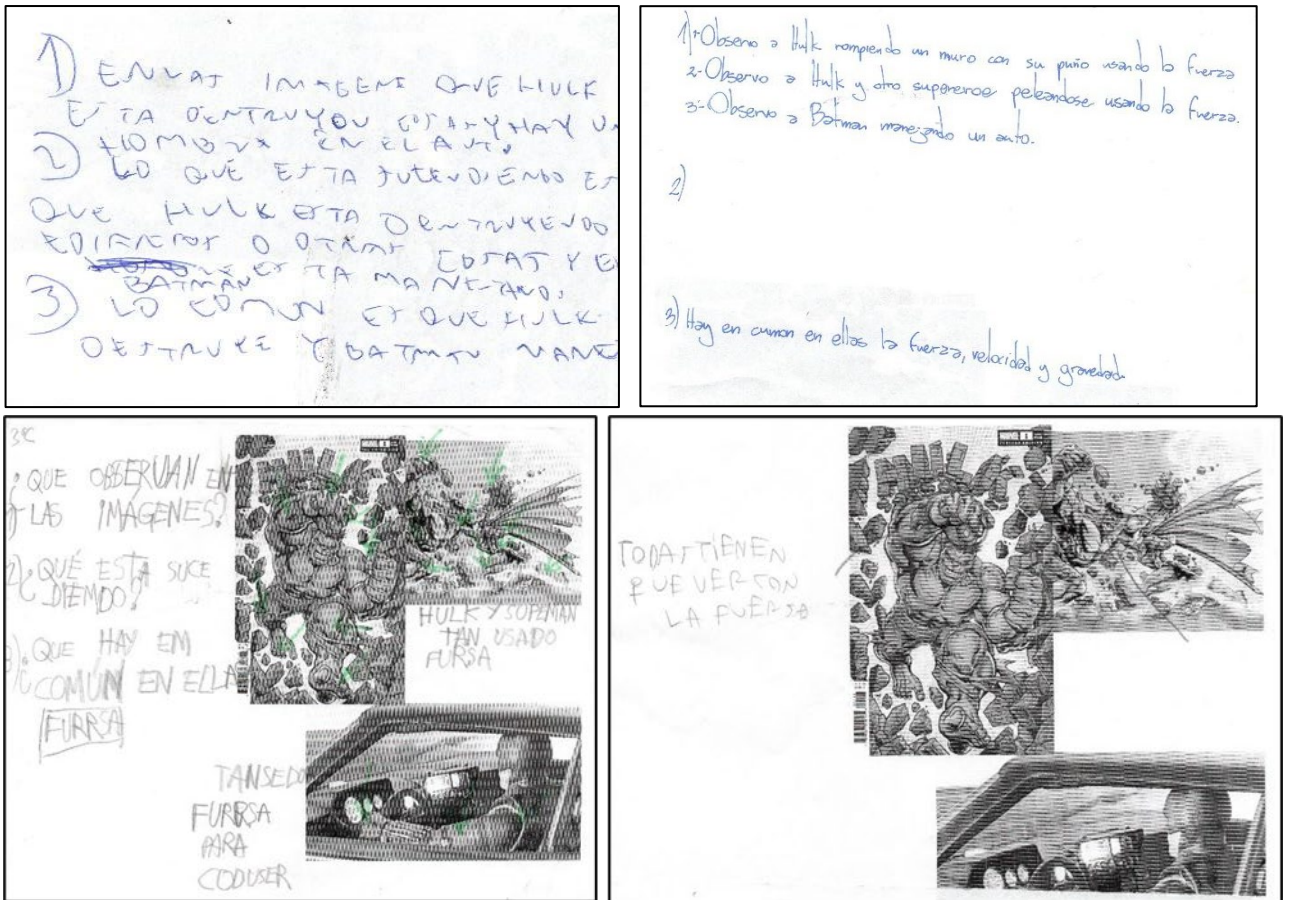 1) EN LAS IMAGENE QUE HULK
ESTA DENTRUYOU COSAS Y HAY UN
HOMBRE EN EL AUTO
2) LO QUE ESTA SUCENDIENDO ES
QUE HULK ESTA DENTRUYENDO
EDIFICIOS O OTRAS COSAS Y E
BATMAN ESTA MANEJANDO.
3) LO COMUN ES QUE HULK
DESTRUYE Y BATMAN MANE
1) 1-Observo a Hulk rompiendo un muro con su puño usando la fuerza
2-Observo a Hulk y otro superheroe peleandose usando la fuerza.
3-Observo a Batman manejando un auto.
2)
3) Hay en cumon en ellas la fuerza, velocidad y gravedad.
3ºC
1) ¿QUE OBSERVAN EN
LAS IMAGENES?
2) ¿QUÉ ESTA SUCE
DIEMDO?
3) ¿QUE HAY EM
COMÚN EN ELLA
FURRSA
HULK Y SUPEMAN
TAN USADO
FURSA
TANSEDO
FURRSA
PARA
CODUSER
TODAS TIENEN
QUE VER CON
LA FUERSA